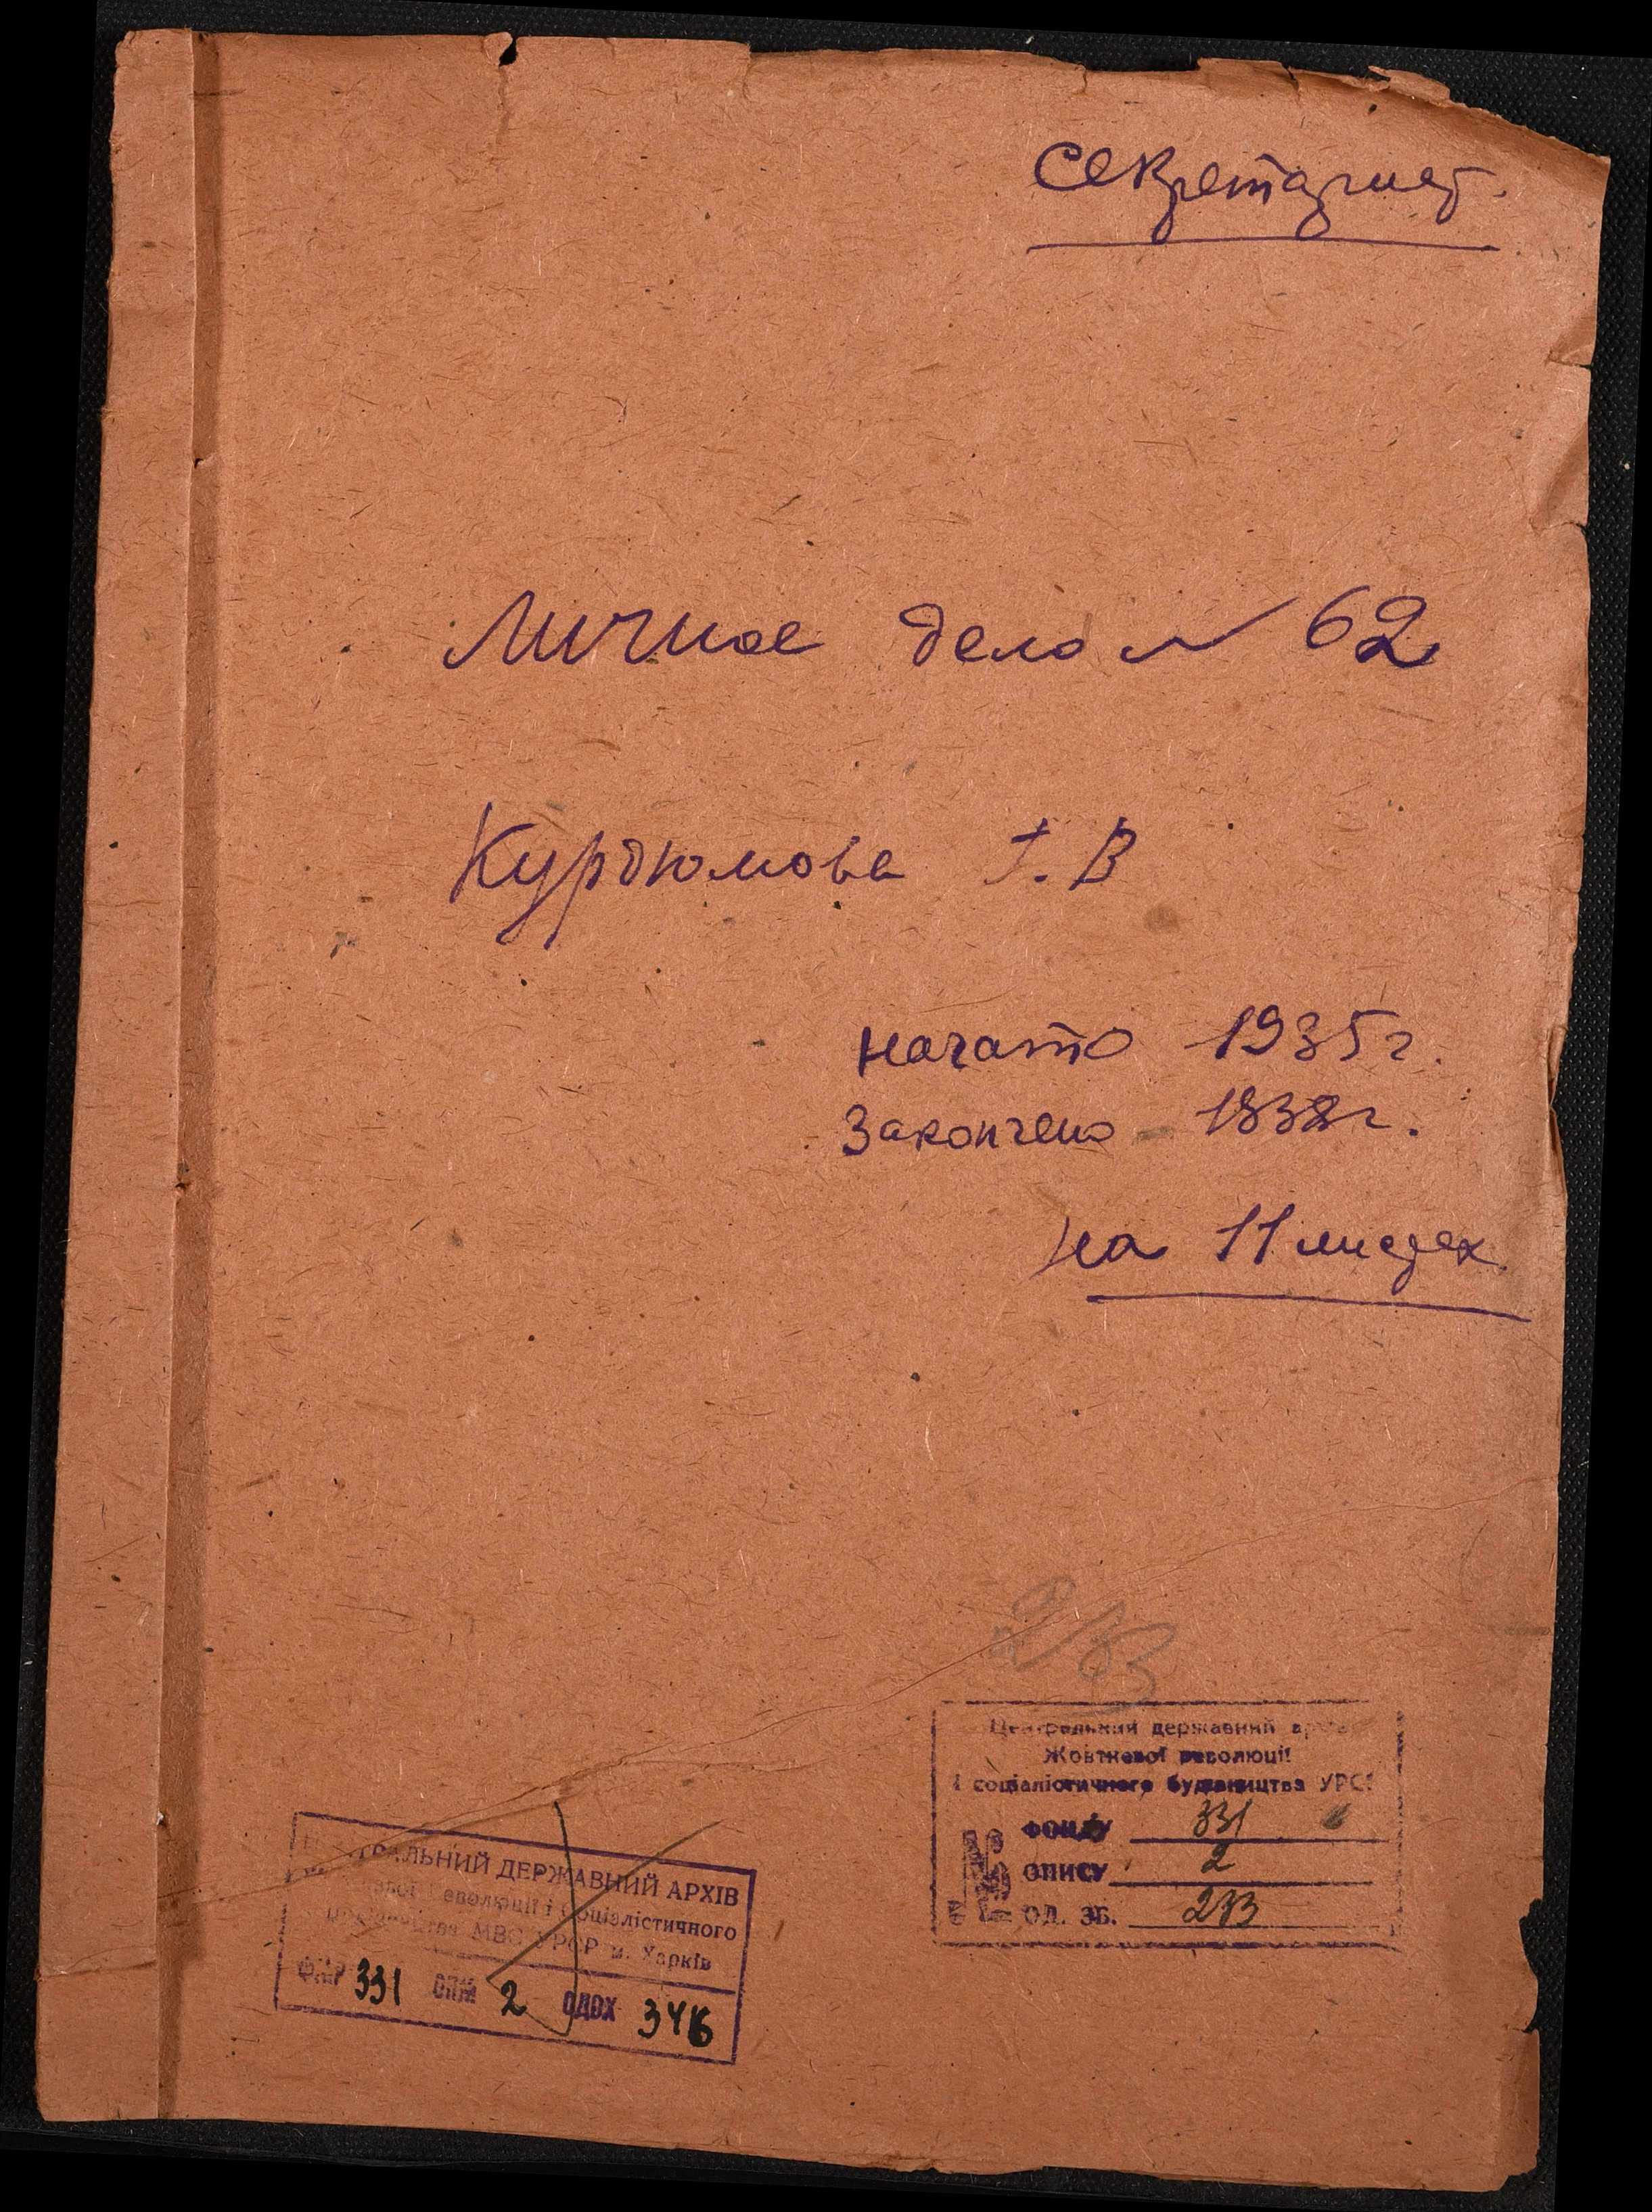 Секретариат.
Личное дело № 62
Курдюмова Г. В
начато 1935г.
Закончено 1938г.
на 11 листах.
Центральний державний архів
Жовтневої революції
і соціалістичного будівництва УРСР
№ ФОНДУ 331
ОПИСУ 2
ОД. ЗБ. 273
ЦЕНТРАЛЬНИЙ ДЕРЖАВНИЙ АРХІВ
революції і соціалістичного
будівництва МВС УРСР м. Харків
331 ОПИ 2 ОДОХ 3416